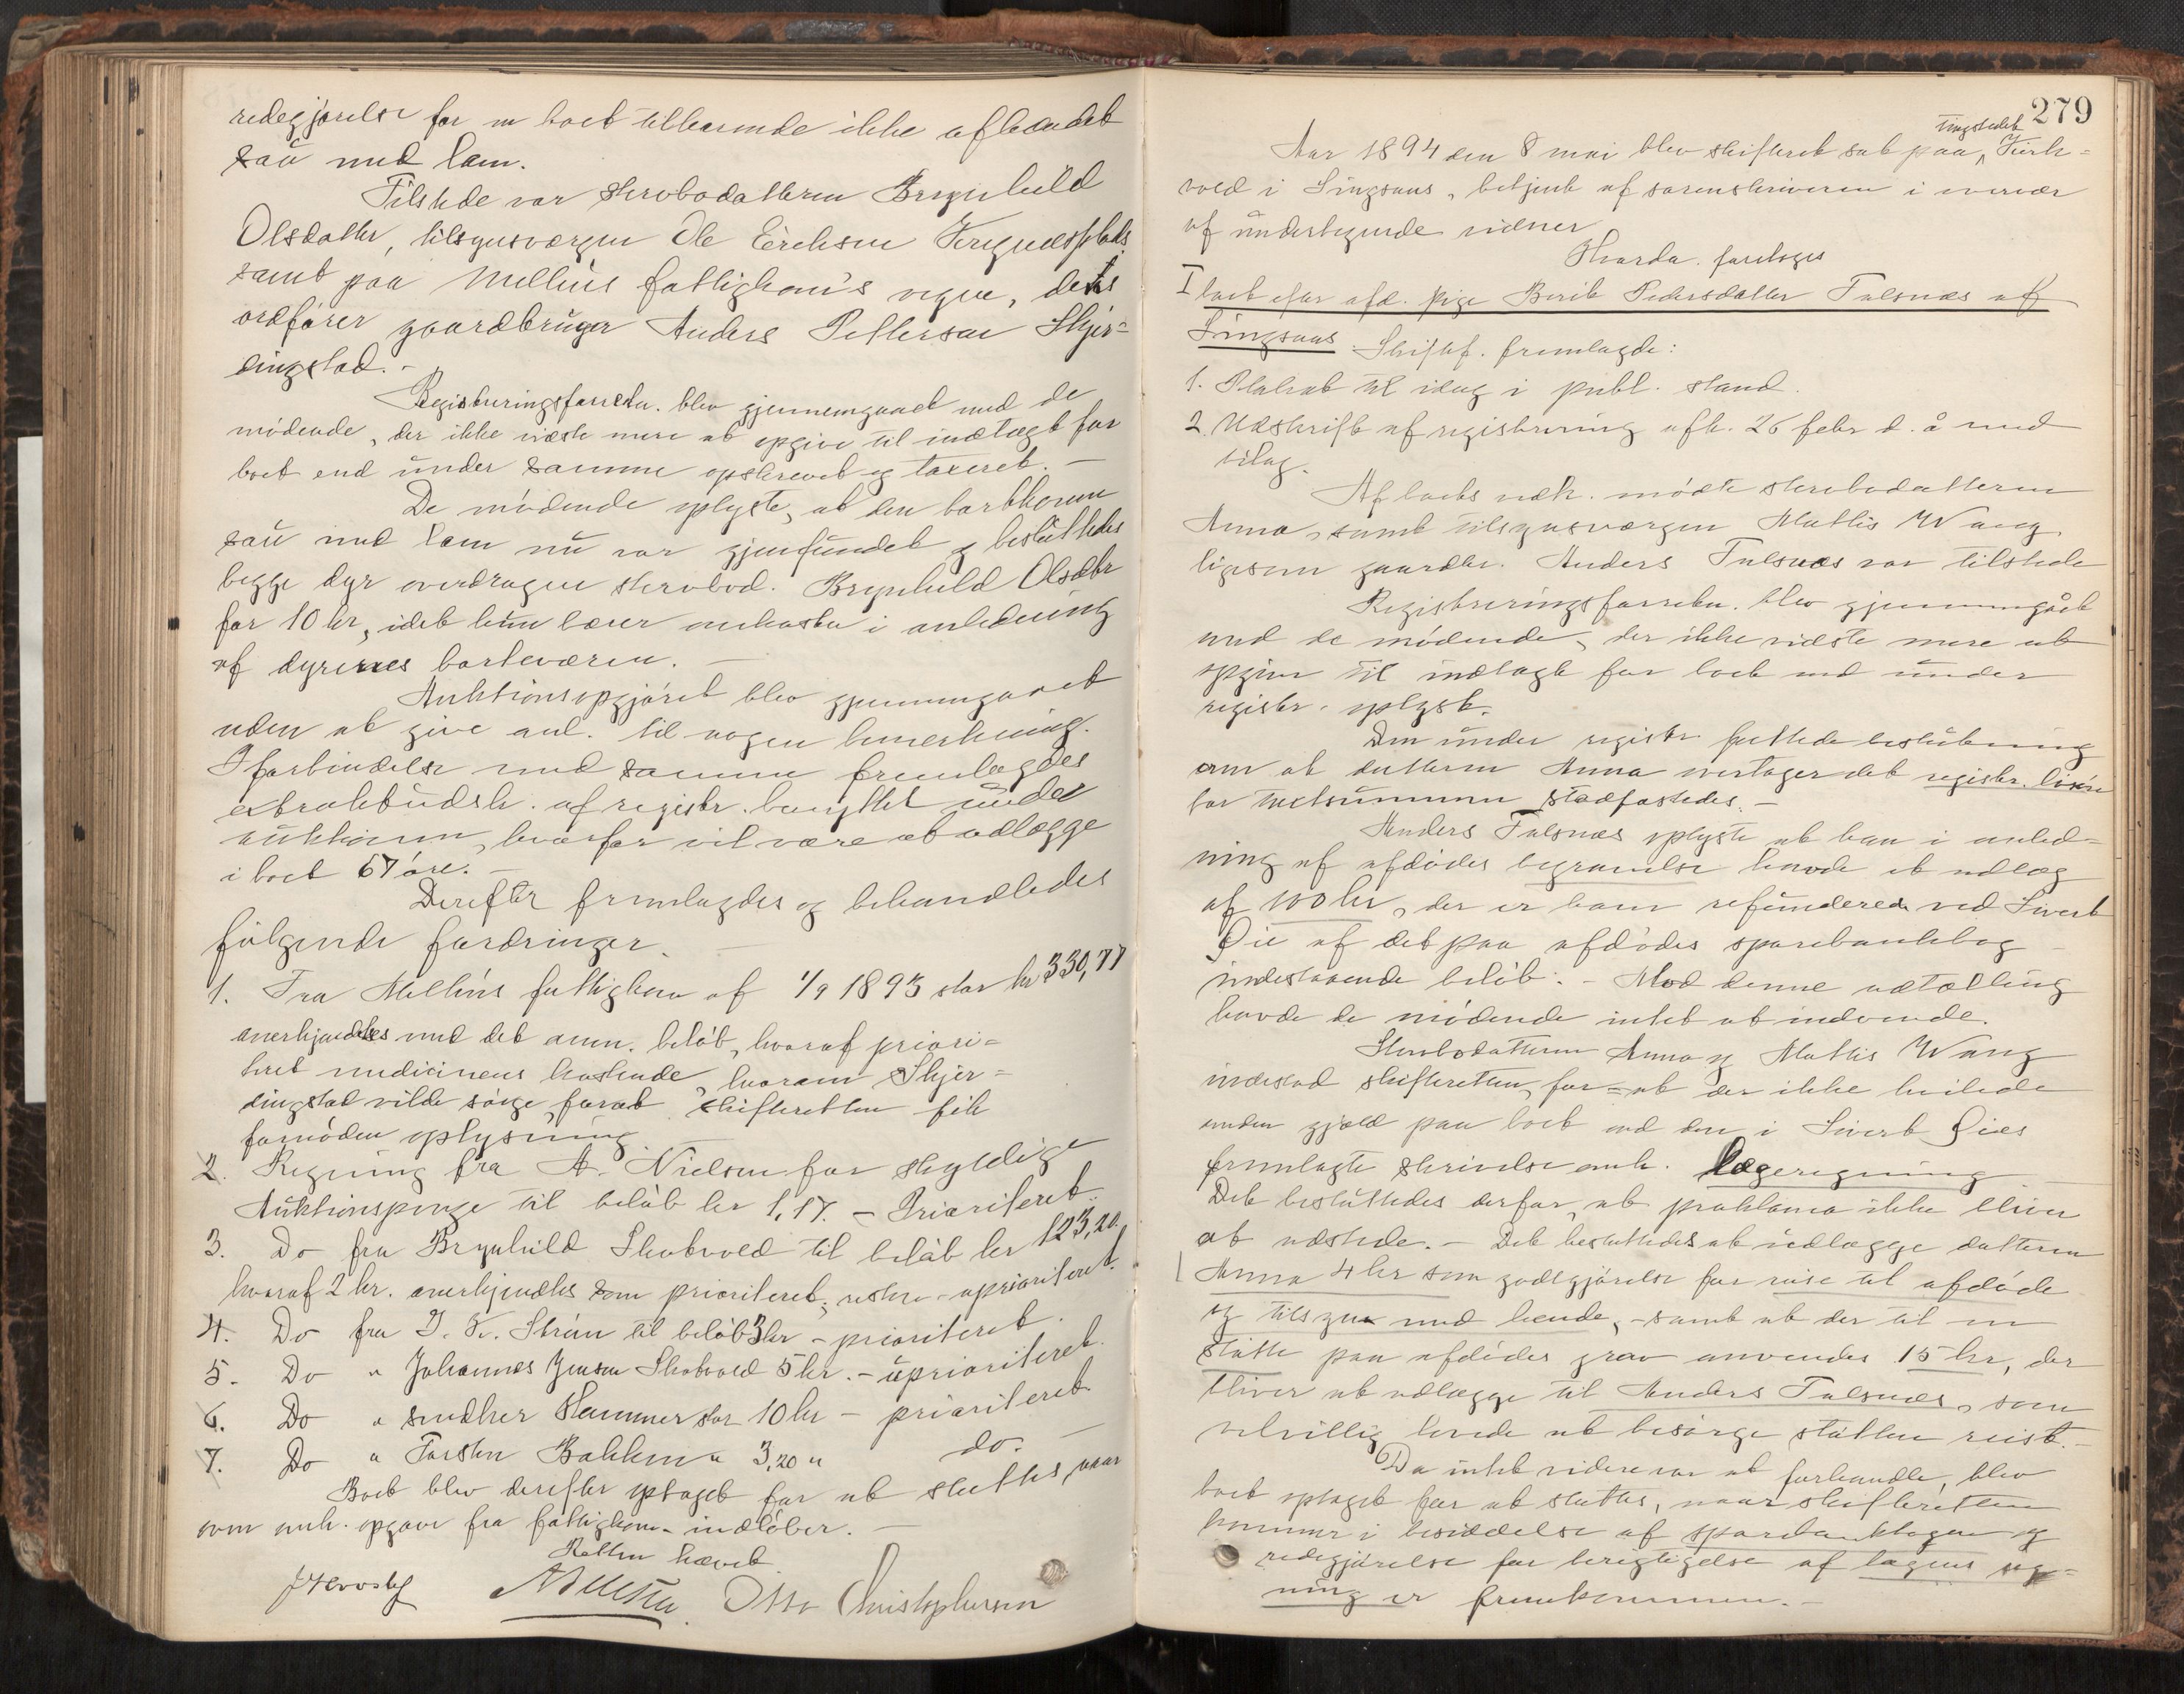 redegjørelse for en boet tilhørende ikke afhændet
sau med lam.
Tilstede var stervbodatteren Brynhild
Olsdatter, tilsynsværgen Ole Ericksen
samt paa Melhus fattigkom's vegne, dets
ordfører gaardbruger Anders Pettersen Skjer=
dingstad.-
Registreringsforretn. blev gjennemgaaet med de
mødende, der ikke vidste mere at opgive til indtægt for
boet end under samme opskrevet og taxeret.-
De mødende oplyste, at den bortkomne
sau med lam nu var gjenfundet og besluttedes
begge dyr overdragen stervbod. Brynhild Olsdtr
for 10 kr, idet hun bærer omkostn i anledning
af dyrenes borteværen.
Auktionsopgjøret blev gjennemgaaet
uden at give anl. til nogen bemerkning.
I forbindelse med samme fremlagdes
extraktudskr. af registr. benyttet under
auktionen, hvorfor vil være at udlægge
i boet 67 øre.-
Derefter fremlagdes og behandledes
følgende fordringer.
1. Fra Melhus fattigkom af 1/9 1893 stor kr 330,77
anerkjendtes med det anm. beløb, hvoraf priori=
teret medicinens kostende, hvorom Skjer=
dingstad vilde sørge forat skifteretten fik
fornøden oplysning.
2. Regning fra A. Nielsen for skyldige
Auktionspenge til beløb kr 1,17. - Prioriteret.
3. Do fra Brynhild Skobvold til beløb kr 123,20.
hvoraf 2 kr. anerkjendtes som prioriteret, resten - uprioriteret.
4. Do fra til beløb 3 kr - prioriteret.
5. Do " Johannes Jensen Skobvold 5 kr. - uprioriteret.
6. Do " snedker Hammer stor 10 kr - prioriteret.
7. Do " Torsten Bakken " 3,20 " do.
Boet blev derefter optaget for at sluttes, naar
som omh. opgave fra fattigkom. indløber.-
Retten hævet
ANielsen. Otto Christophersen
279
Aar 1894 den 8 mai blev skifteret sat paa tingstedet
vold i Singsaas, betjent af sorenskriveren i overvær
af undertegnede vidner
Hvorda. foretoges
I boet efter afd. pige Berit Pedersdatter Talsnæs af
Singsaas. Skiftef. fremlagde:
1. Plakat til idag i publ. stand.
2. Udskrift af registrering afh. 26 febr d. å med
bilag.
Af boets vedk. mødte stervbodatteren
Anna, samt tilsynsværgen Mattis Wang
ligesom gaardbr. Anders Talsnæs var tilstede
Registreringsforretn. blev gjennemgået
med de mødende, der ikke vidste mere at
opgive til indtægt for boet end under
registr. oplyst.
Den under registr fattede beslutning
om at datteren Anna overtager det registr. løsøre
for taxtsummen stadfæstedes.-
Anders Talsnæs oplyste at han i anled=
ning af afdødes begravelse havde et udlæg
af 100 kr, der er ham refunderede ved Sivert
Øie af det paa afdødes sparebankbog
indestaaende beløb.- Mod denne udtælling
havde de mødende intet at indvende.
Stervbodatteren Anna og Mattis Wang
indestod skifteretten for - at der ikke heilede
anden gjæld paa boet end den i Sivert Øies
fremlagte skrivelse omh. lægeregning
Det besluttedes derfor, at proklama ikke bliver
at udstede.- Det besluttedes at udlægge datteren
Anna 4 kr som godtgjørelse for reise til afdøde
og tilsyn med hende, - samt at der til en
støtte paa afdødes grav anvendes 15 kr, der
bliver at udlægge til Anders Talsnæs, som
velvillig lovede at besørge støtten reist.-
Da intet videre var at forhandle, blev
boet optaget for at sluttes, naar skifteretten
kommer i besiddelse af sparebankbogen og
redegjørelse for berigtigelse af lægens reg=
ning er fremkommen.-